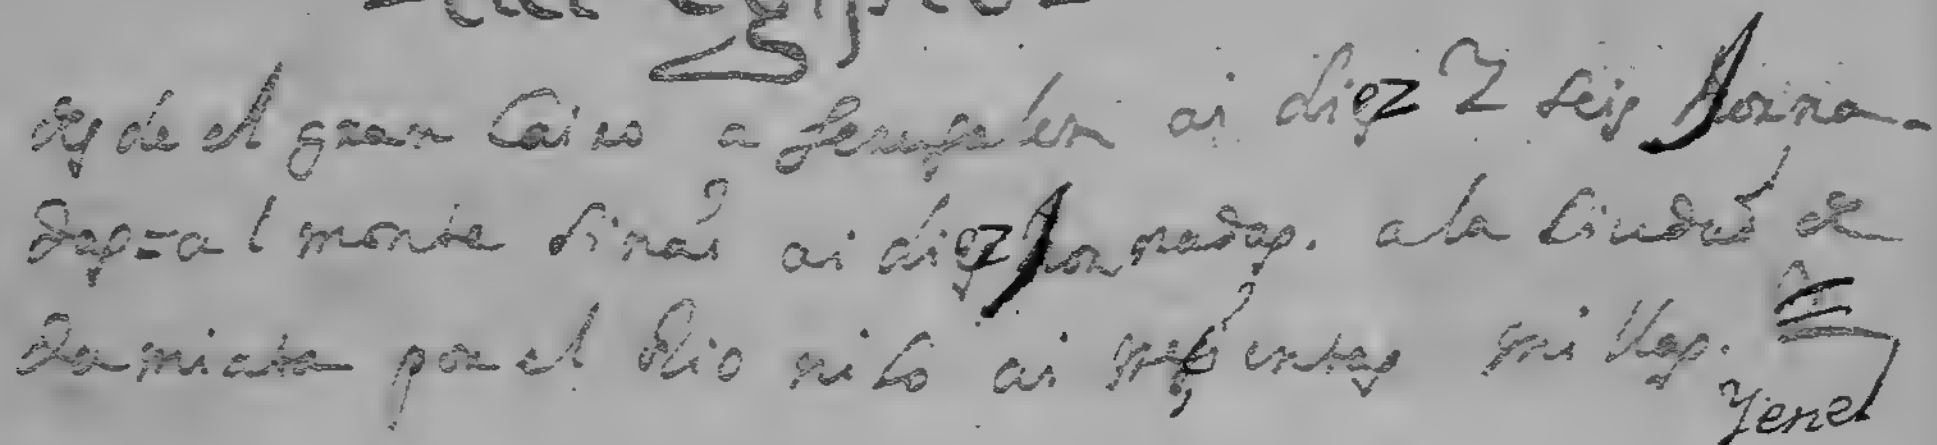 desde el gran Cairo a Jerusalem ai diez y seis Jorna-
das = al monte Sinai ai diez Jornadas. a la Ciudad de
Damiata por el Rio nilo ai millas.
y en el